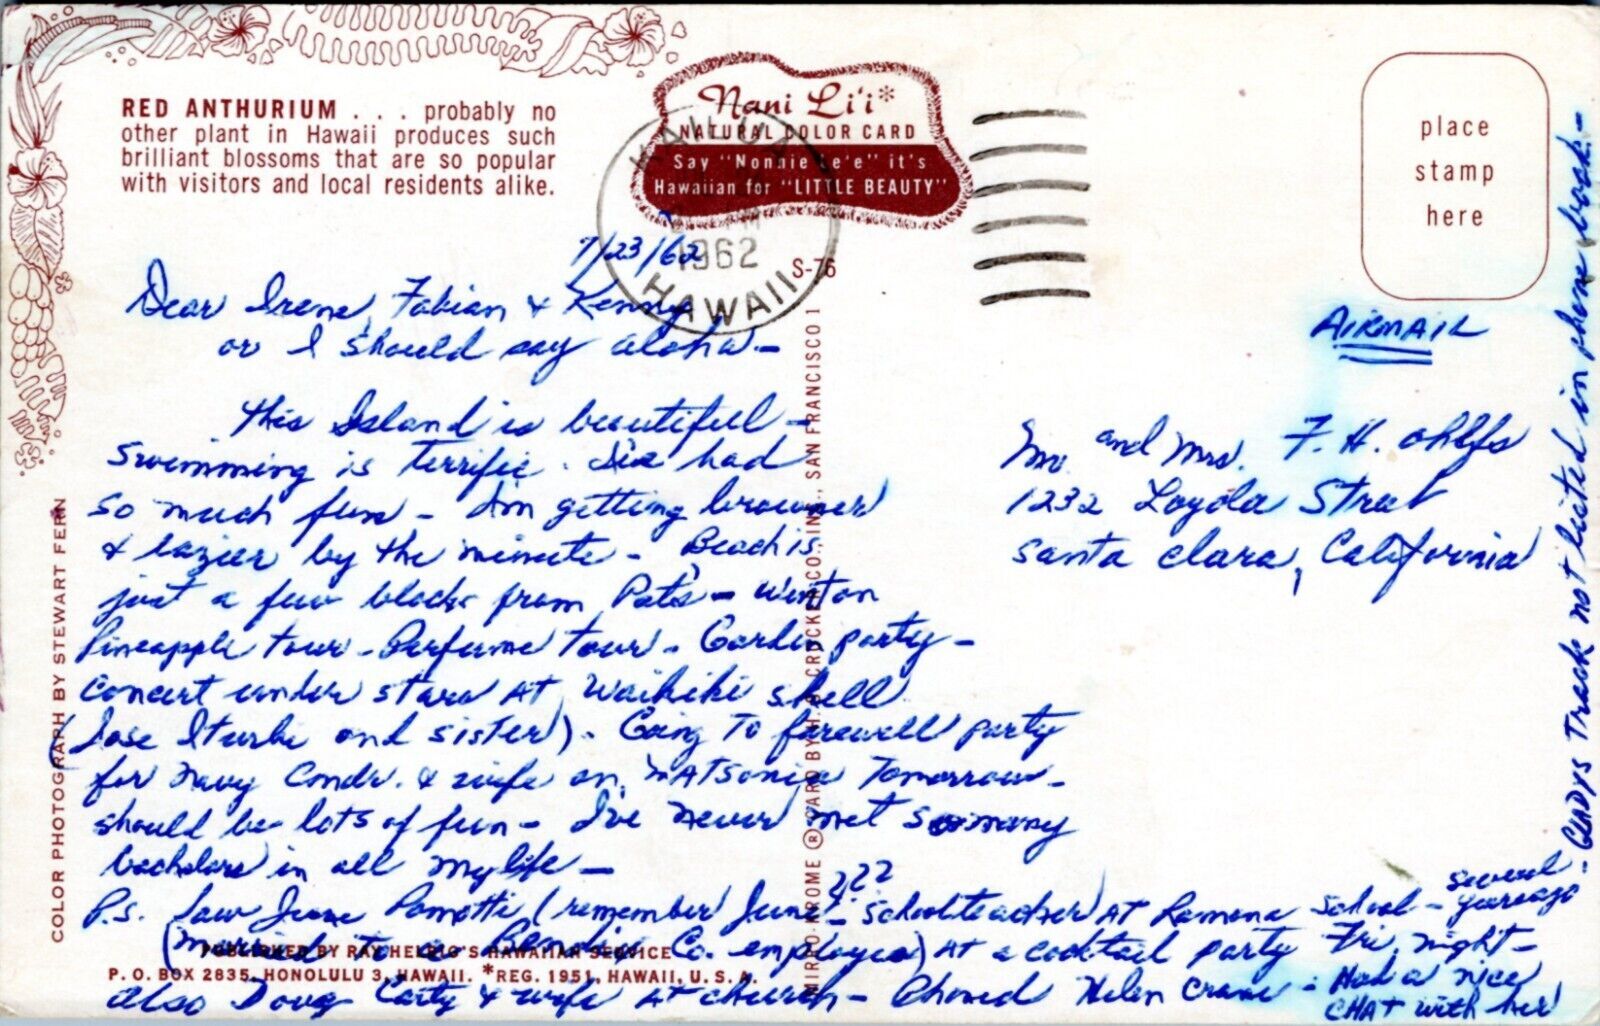 RED ANTHURIUM . . . probably no
other plant in Hawaii produces such
brilliant blossoms that are so popular
with visitors and local residents alike.
Nani Li'i*
NATURAL COLOR CARD
Say "Nonnie Le'e" it's
Hawaiian for "LITTLE BEAUTY"
KAILUA
1962
HAWAII
S-76
place
stamp
here
7/23/62
Dear Irene, Fabian & Kenny
or I should say aloha —
This Island is beautiful —
Swimming is terrific. had
so much fun — Im getting browner
& lazier by the minute — Beach is
just a few blocks from Pat's — Went on
Pineapple tour — Perfume tour — Garden party —
Concert under stars at Waikiki Shell
(Jose Iturbi and sister). Going to farewell party
for Navy Comdr. & wife on Matsonia Tomorrow —
should be lots of fun — I've never met so many
bachelors in all my life —
P.S. Saw June (remember June ??? — Schoolteacher at Ramona School — several years ago
(married to a Co. employee) at a cocktail party Fri. night —
also Doug Carty & wife at church — Phoned Helen Crane — Had a nice
CHAT with her
— GLADYS Track not listed in phone book —
AIRMAIL
Mr. and Mrs. F. H. Ohlfs
1232 Loyola Street
Santa Clara, California
COLOR PHOTOGRAPH BY STEWART FERN
MIRRO-KROME ® CARD BY H.S. CROCKER CO., INC., SAN FRANCISCO 1
PUBLISHED BY RAY HELBIG'S HAWAIIAN SERVICE
P. O. BOX 2835, HONOLULU 3, HAWAII. *REG. 1951, HAWAII, U. S. A.